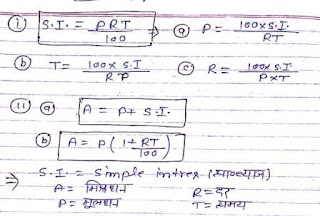 (i) S.I. = PRT/100 ⇒ (a) P = 100×S.I./RT
(b) T = 100×S.I/R P (c) R = 100×S.I/P×T
(ii) (a) A = P+ S.I.
(b) A = P(1+RT/100)
⇒ S.I. = Simple intres (साधारण ब्याज)
A = मिश्रधन R = दर
P = मूलधन T = समय